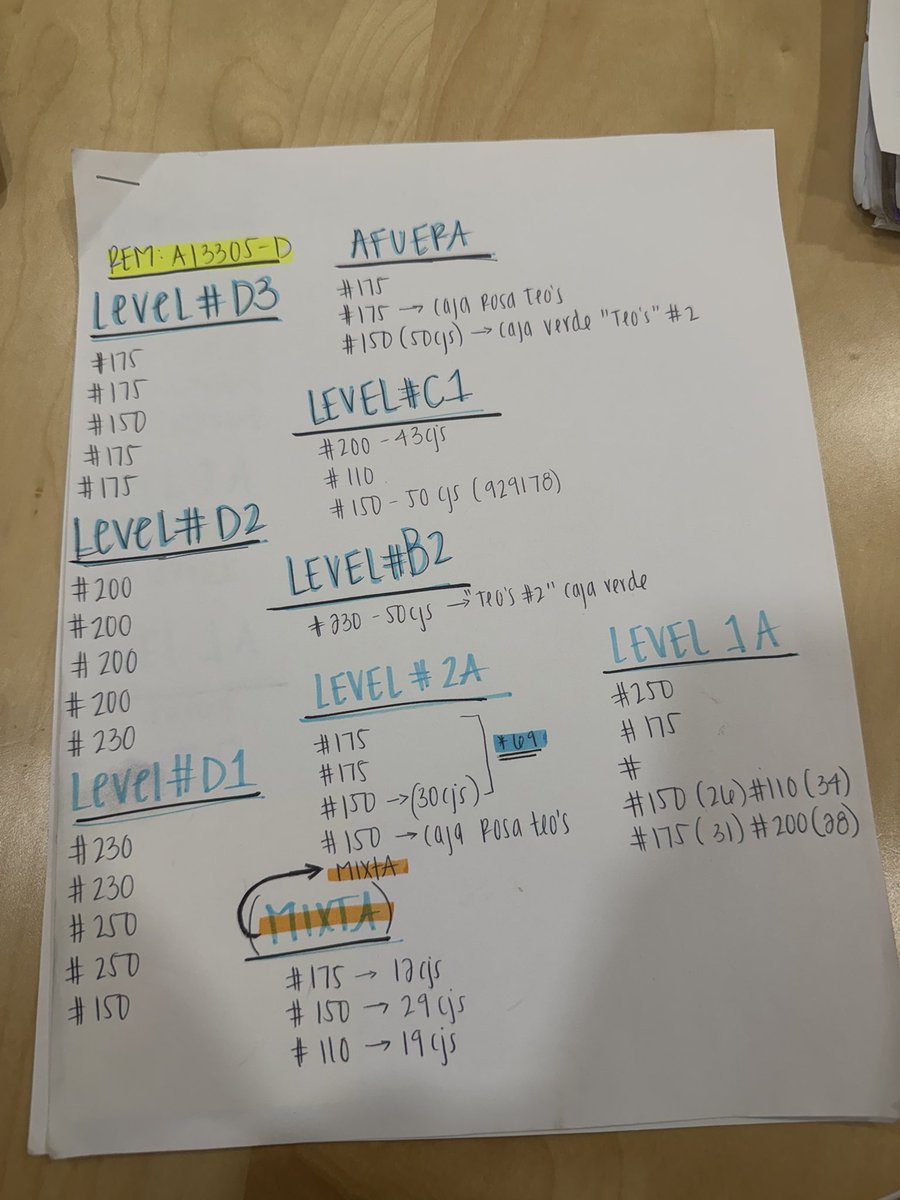 REM: A13305-D
Level # D3
#175
#175
#150
#175
#175
Level # D2
#200
#200
#200
#200
#230
Level # D1
#230
#230
#250
#250
#150
AFUERA
#175
#175 → caja Rosa Teo's
#150 (50cjs) → caja verde "Teo's" #2
LEVEL # C1
#200 - 43cjs
#110
#150 - 50 cjs (929178)
LEVEL # B2
#230 - 50cjs → "Teo's #2" caja verde
LEVEL # 2A
#175
#175
#150 → (30cjs)
#69
#150 → caja Rosa teo's
MIXTA
(MIXTA)
#175 → 12cjs
#150 → 29cjs
#110 → 19cjs
LEVEL 1A
#250
#175
#
#150 (26) #110 (34)
#175 (31) #200 (28)